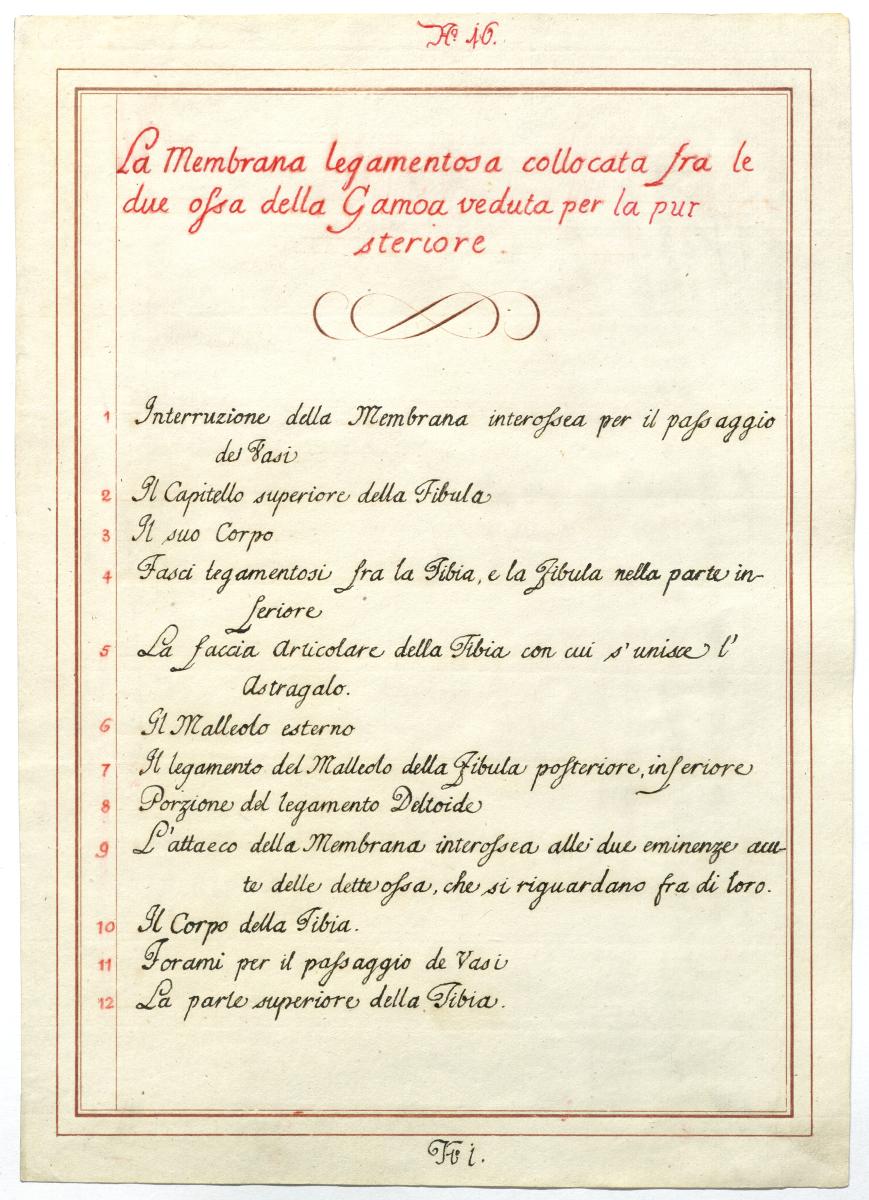 No. 16.
La Membrana legamentosa collocata fra le
due ossa della Gamoa veduta per la pur
steriore.
1 Interruzione della Membrana interossea per il passaggio
dei Vasi
2 Il Capitello superiore della Fibula
3 Il suo Corpo
4 Fasci legamentosi fra la Tibia, e la Fibula nella parte in-
feriore
5 La faccia Articolare della Tibia con cui s'unisce l'
Astragalo.
6 Il Malleolo esterno
7 Il legamento del Malleolo della Fibula posteriore, inferiore
8 Porzione del legamento Deltoide
9 L'attacco della Membrana interossea alle due eminenze acu-
te delle dette ossa, che si riguardano fra di loro.
10 Il Corpo della Tibia.
11 Forami per il passaggio de Vasi
12 La parte superiore della Tibia.